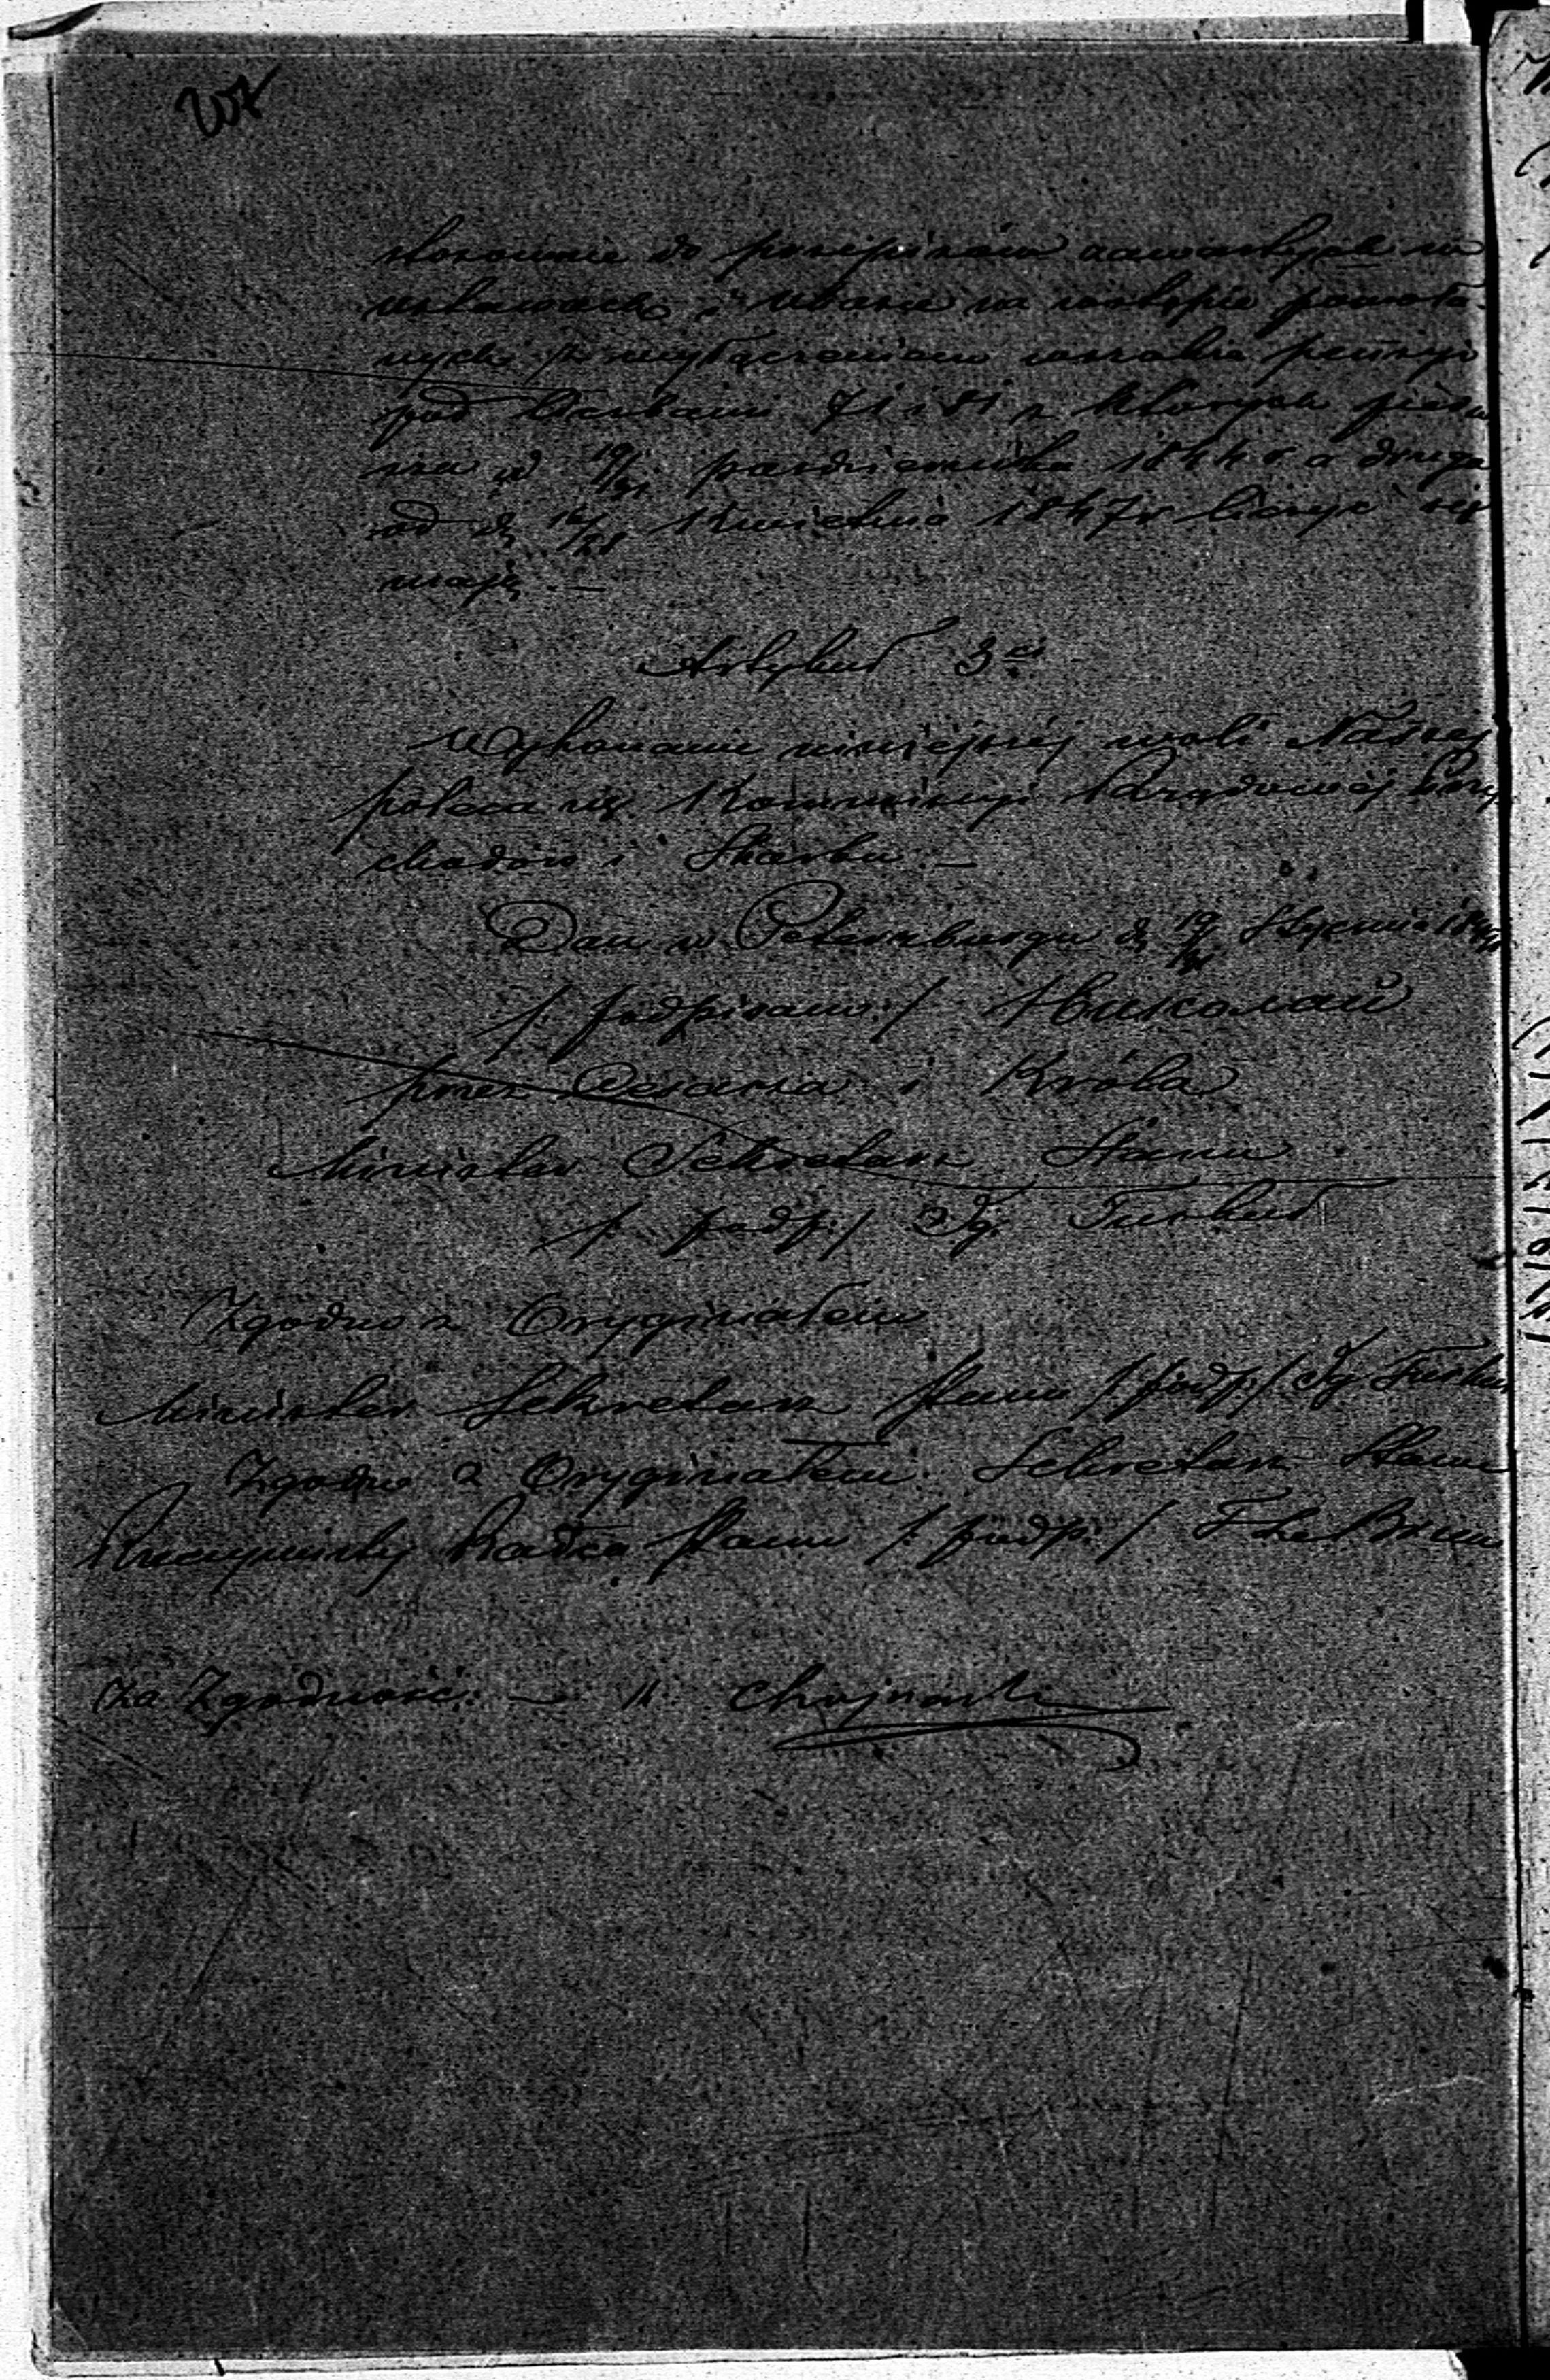 207
stosownie do przepisów zawartych w
ustawach i Ukazie na wstępie powoła-
nych z wyłączeniem wszakże pensyi
pod liczbami 71 i 81 z których piérw
sza od 19/31 października 1844 r a druga
od d. 16/28 Kwietnia 1847 r liczyć się
mają. —
Artykuł 3ci
Wykonanie niniejszéj woli Naszej
poleca się Kommissyi Rządowéj Przy
chodów i Skarbu. —
Dan w Petersburgu d. 19/31 Stycznia
/: podpisano :/ Николай
przez Cesarza i Króla
Minister Sekretarz Stanu
/: podp :/ Ig. Turkuł
Zgodno z Oryginałem
Minister Sekretarz Stanu /: podp :/ Ig. Turkuł
Zgodno z Oryginałem Sekretarz Stanu
Rzeczywisty Radca Stanu /: podp :/ T Le Brun
Za Zgodność: —